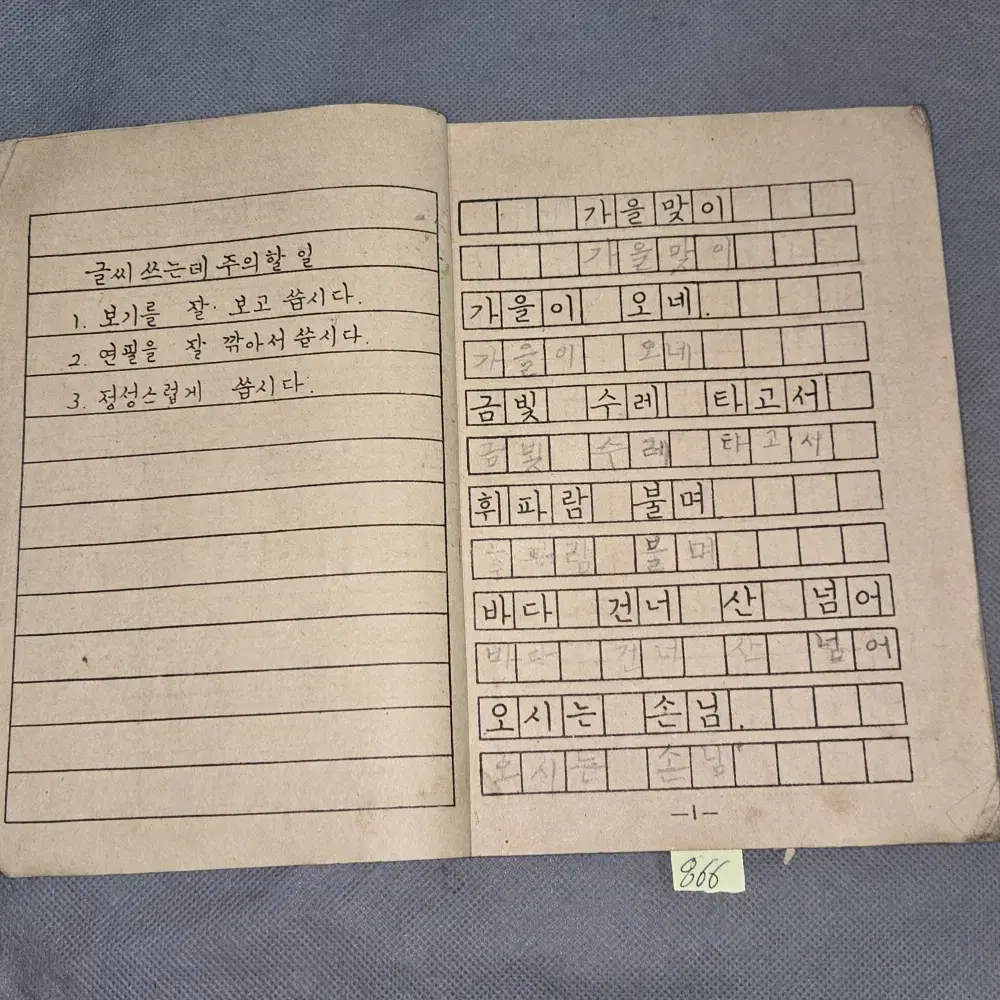 글씨 쓰는데 주의할 일
1. 보기를 잘· 보고 씁시다.
2. 연필을 잘 깎아서 씁시다.
3. 정성스럽게 씁시다.
가을맞이
가을맞이
가을이 오네.
가을이 오네
금빛 수레 타고서
금빛 수레 타고서
휘파람 불며
휘파람 불며
바다 건너 산 넘어
바다 건너 산 넘어
오시는 손님.
오시는 손님.
—1—
866